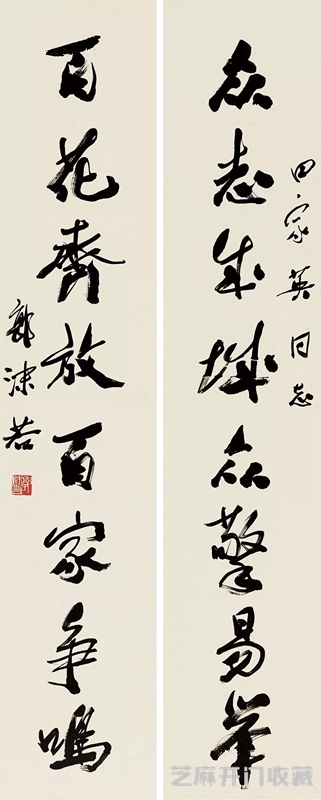 田家英同志
众志成城众擎易举
百花齐放百家争鸣
郭沫若
芝麻开门收藏